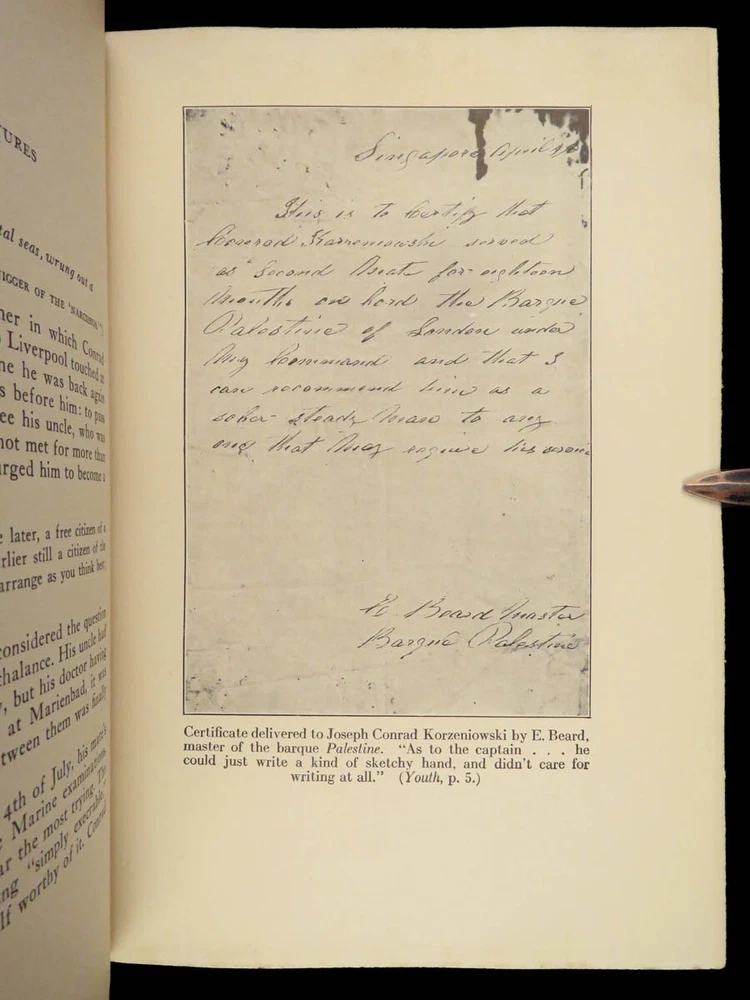 TURES
tal seas, wrung out a
NIGGER OF THE 'NARCISSUS'")
her in which Conrad
Liverpool touched at
he was back again
s before him: to pass
ee his uncle, who was
not met for more than
urged him to become a
e later, a free citizen of a
rlier still a citizen of the
arrange as you think best;
considered the question
chalance. His uncle had
, but his doctor having
at Marienbad, it was
tween them was finally
4th of July, his mate's
Marine examinations
ar the most trying. The
ng "simply execrable,
lf worthy of it. Conrad
Singapore April
This is to Certify that
Conrad Karzeniowski served
as Second Mate for eighteen
Months on bord the Barque
Palestine of London under
My Command and that I
can recommend him as a
sober steady Man to any
one that May enquire his
E Beard Master
Barque Palestine
Certificate delivered to Joseph Conrad Korzeniowski by E. Beard,
master of the barque Palestine. "As to the captain . . . he
could just write a kind of sketchy hand, and didn't care for
writing at all." (Youth, p. 5.)